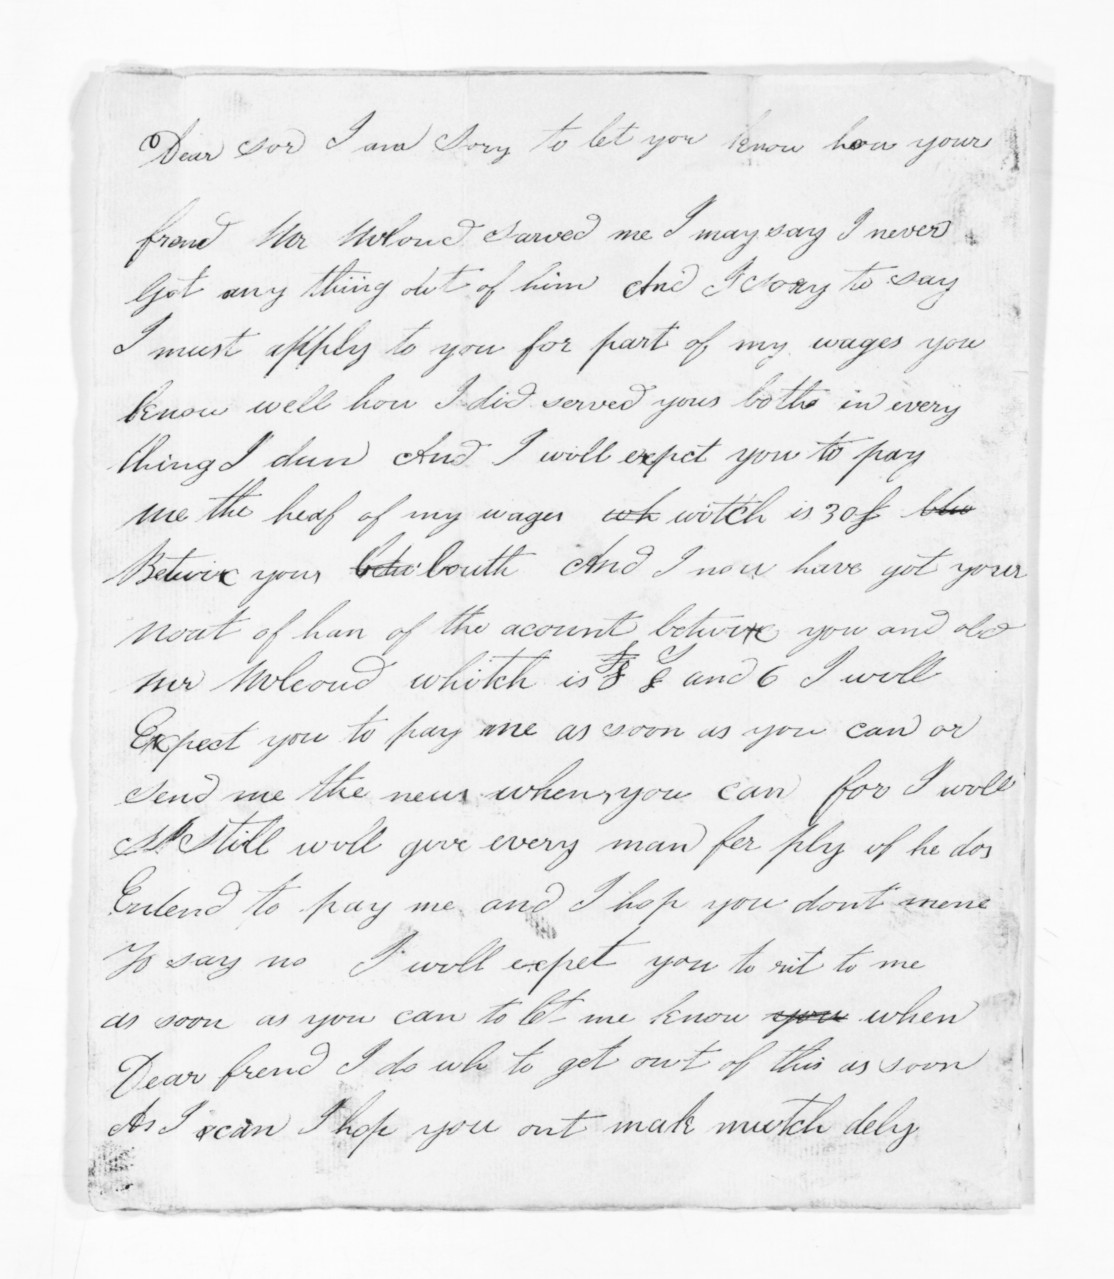 Dear sor I am Sory to let yor know how your
frend Mr McLoud sarved me I may say I never
Got any thing owt of him And I Sory to say
I must apply to you for part of my wages you
know well how I did served yous both in every
thing I dun And I woll expct you to pay
me the heaf of my wages wh witch is 30£ btw
Betwix yous betw bouth And I now have got your
Noat of han of the acount betwixt you and old
mr Mcleoud whitch is 8 and 6 I woll
Expect you to pay me as soon as you can or
send me the news when you can for I woll
Still woll give every man fer ply if he dos
Entend to pay me and I hop you dont mene
To say no I woll expet you to rit to me
as soon as you can to let me know you when
Dear frend I do wh to get owt of this as soon
As I can I hop you ont mak mutch dely